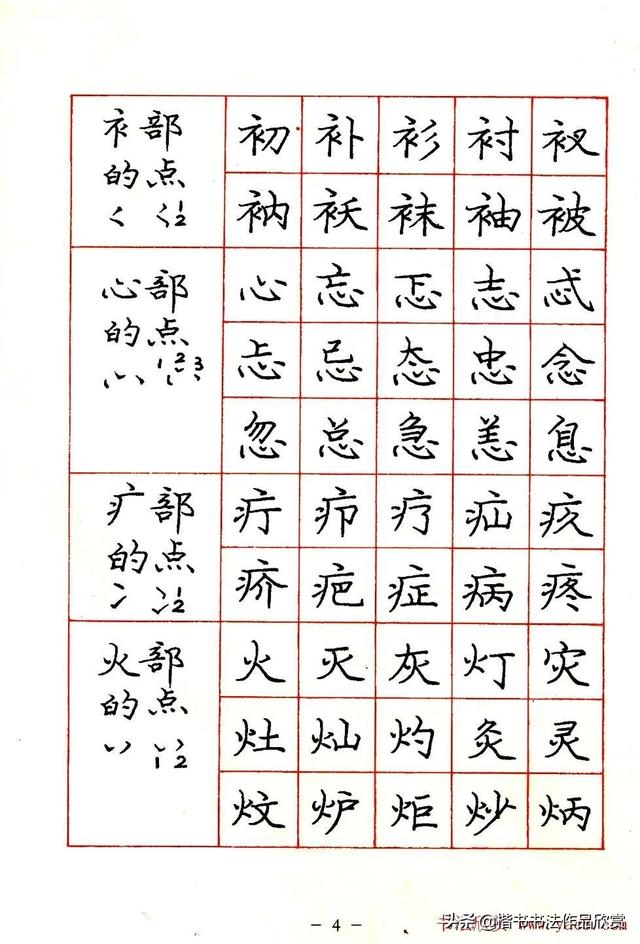 衤部
的点
初补衫衬衩
衲袄袜袖被
1 2
心部
的点
心忘忑志忒
忐忌态忠念
忽总急恙息
1 2 3
疒部
的点
疔疖疗疝疚
疥疤症病疼
1 2
火部
的点
火灭灰灯灾
灶灿灼灸灵
炆炉炬炒炳
1 2
- 4 -
头条@楷书书法作品欣赏